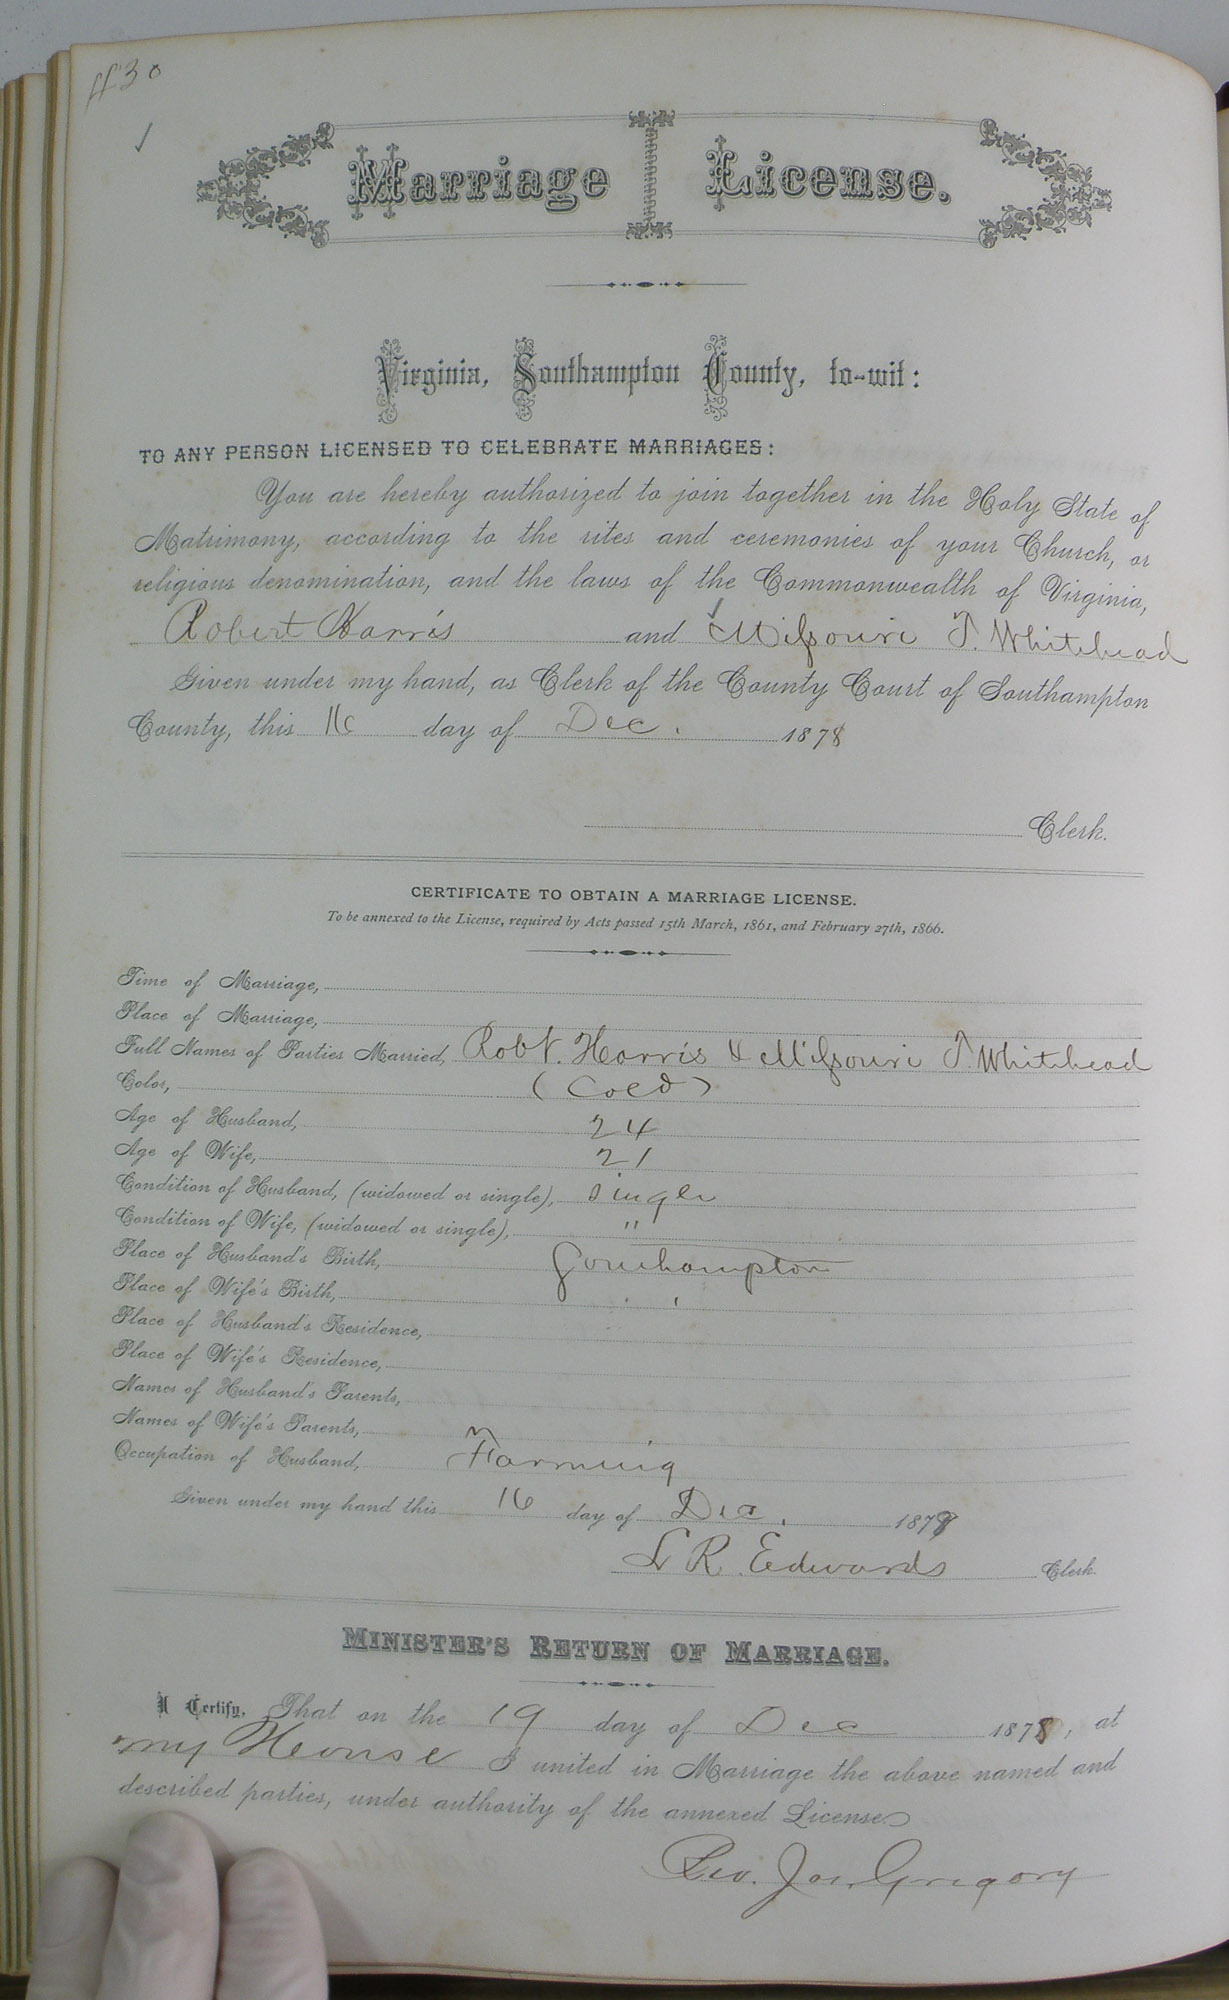 Marriage License.
Virginia, Southampton County, to-wit:
TO ANY PERSON LICENSED TO CELEBRATE MARRIAGES:
You are hereby authorized to join together in the Holy State of
Matrimony, according to the rites and ceremonies of your Church, or
religious denomination, and the laws of the Commonwealth of Virginia,
Robert Harris and Missouri T. Whitehead
Given under my hand, as Clerk of the County Court of Southampton
County, this 16 day of Dec. 1878
Clerk.
CERTIFICATE TO OBTAIN A MARRIAGE LICENSE.
To be annexed to the License, required by Acts passed 15th March, 1861, and February 27th, 1866.
Time of Marriage,
Place of Marriage,
Full Names of Parties Married, Robt. Harris & Missouri T. Whitehead
Color, (Cold)
Age of Husband, 24
Age of Wife, 21
Condition of Husband, (widowed or single), Single
Condition of Wife, (widowed or single), "
Place of Husband's Birth, Southampton
Place of Wife's Birth, "
Place of Husband's Residence,
Place of Wife's Residence,
Names of Husband's Parents,
Names of Wife's Parents,
Occupation of Husband, Farming
Given under my hand this 16 day of Dec. 1878
L R. Edwards Clerk.
MINISTER'S RETURN OF MARRIAGE.
I Certify, That on the 19 day of Dec 1878, at
my House I united in Marriage the above named and
described parties, under authority of the annexed License.
Rev. Jos. Gregory